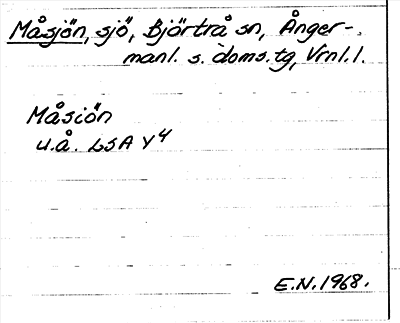 Måsjön, sjö, Björtrå sn, Ånger-
manl. s. doms.tg, Vrnl.l.
Måsiön
u.å. LSA Y4
E.N. 1968.